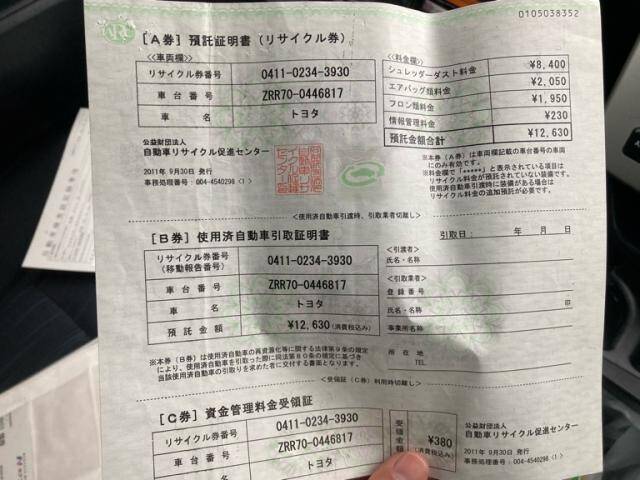 0105038352
[A券] 預託証明書 (リサイクル券)
<<車両欄>>
リサイクル券番号 0411-0234-3930
車台番号 ZRR70-0446817
車名 トヨタ
<<料金欄>>
シュレッダーダスト料金 ¥8,400
エアバッグ類料金 ¥2,050
フロン類料金 ¥1,950
情報管理料金 ¥230
預託金額合計 ¥12,630
公益財団法人
自動車リサイクル促進センター
2011年 9月30日 発行
事務処理番号:004-4540298 (1)
※本券(A券)は車両欄記載の車台番号の車両
にのみ有効です。
※料金欄で「*****」と表示されている項目は
リサイクル料金が預託されていない装備です。
使用済自動車引渡時に装備がある場合は
リサイクル料金の追加預託が必要です。
<使用済自動車引渡時、引取業者切離し>
[B券] 使用済自動車引取証明書
引取日: 年 月 日
リサイクル券番号
(移動報告番号) 0411-0234-3930
車台番号 ZRR70-0446817
車名 トヨタ
預託金額 ¥12,630(消費税込み)
<引渡者>
氏名・名称
<引取業者>
登録番号
氏名・名称 印
事業所名称
所在地
TEL
※本券(B券)は使用済自動車の再資源化等に関する法律第9条の規定
により、使用済自動車を引取った際に同法第80条の規定に基づき
当該使用済自動車の引取りを求めた者に交付する書面となります。
<受領証(C券)利用時切離し>
[C券] 資金管理料金受領証
リサイクル券番号 0411-0234-3930
車台番号 ZRR70-0446817
車名 トヨタ
受領金額 ¥380
(消費税込み)
公益財団法人
自動車リサイクル促進センター
2011年 9月30日 発行
事務処理番号:004-4540298 (1)